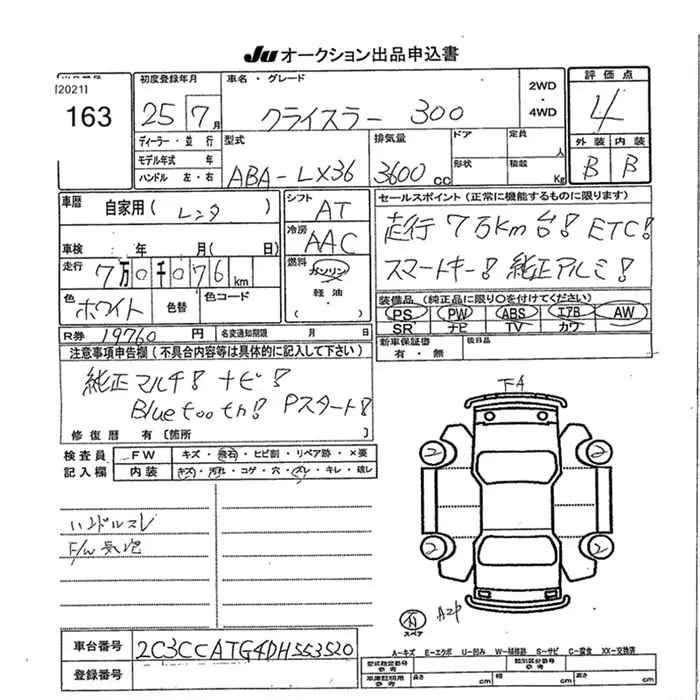 JU オークション出品申込書
[2021]
163
初度登録年月
25 7月
車名・グレード
クライスラー 300
2WD
・
4WD
評価点
4
外装 内装
B B
ディーラー・並行
モデル年式 年
ハンドル 左・右
型式
ABA-LX36
排気量
3600cc
ドア
形状
定員 人
積載 Kg
車歴
自家用(レンタ)
車検 年 月( 日)
走行
7万0千076km
色
ホワイト
色替
色コード
R券 19760 円
名変通知期限 月 日
シフト
AT
冷房
AAC
燃料
ガソリン
軽油
・
( )
セールスポイント(正常に機能するものに限ります)
走行7万km台! ETC!
スマートキー! 純正アルミ!
装備品(純正品に限り〇を付けてください)
PS PW ABS エアB AW
SR ナビ TV カワ
新車保証書
有・無
後日品
注意事項申告欄(不具合内容等は具体的に記入して下さい)
純正マルチ! ナビ!
Bluetooth! Pスタート!
修復歴 有〔箇所 〕
検査員
記入欄
FW キズ・飛石・ヒビ割・リペア跡・×要
内装 キズ・汚れ・コゲ・穴・スレ・キレ・破レ
ハンドルスレ
F/W気泡
下4
2 2
2 2
スペア
A2P
車台番号 2C3CCATG4DH553520
登録番号
A-キズ E-エクボ U-凹み W-補修跡 S-サビ C-腐食 XX-交換済
型式指定番号
参考
類別区分番号
参考
車庫証明用
参考
長さ cm
幅 cm
高さ cm